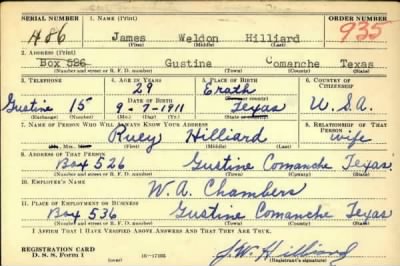 SERIAL NUMBER 1. NAME (Print) ORDER NUMBER
486 James Weldon Hilliard 935
(First) (Middle) (Last)
2. ADDRESS (Print)
Box 526 Gustine Comanche Texas
(Number and street or R. F. D. number) (Town) (County) (State)
3. TELEPHONE 4. AGE IN YEARS 5. PLACE OF BIRTH 6. COUNTRY OF CITIZENSHIP
29 Erath
Gustine 15 9-7-1911 Texas U.S.A.
7. NAME OF PERSON WHO WILL ALWAYS KNOW YOUR ADDRESS 8. RELATIONSHIP OF THAT PERSON
Ruey Hilliard wife
(First) (Middle) (Last)
9. ADDRESS OF THAT PERSON
Box 526 Gustine Comanche Texas
(Number and street or R. F. D. number) (Town) (County) (State)
10. EMPLOYER'S NAME
W. A. Chambers
11. PLACE OF EMPLOYMENT OR BUSINESS
Box 536 Gustine Comanche Texas
(Number and street or R. F. D. number) (Town) (County) (State)
I AFFIRM THAT I HAVE VERIFIED ABOVE ANSWERS AND THAT THEY ARE TRUE.
REGISTRATION CARD J.W. Hilliard
D. S. S. Form 1 (Registrant's signature)